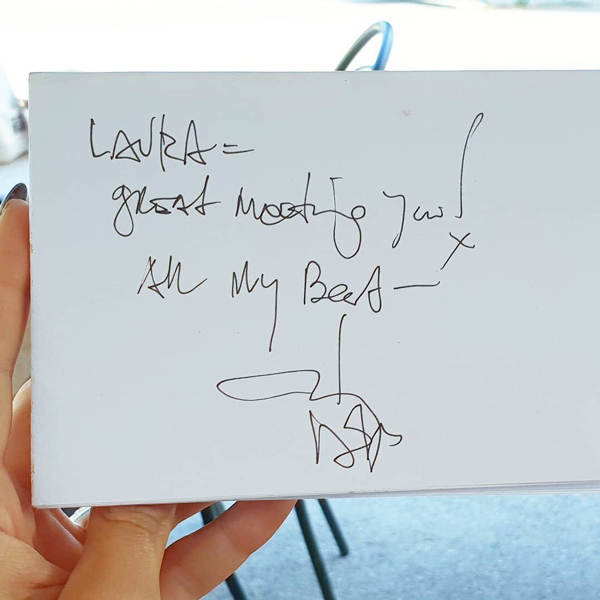 LAURA =
great meeting you!
All My Best —
x